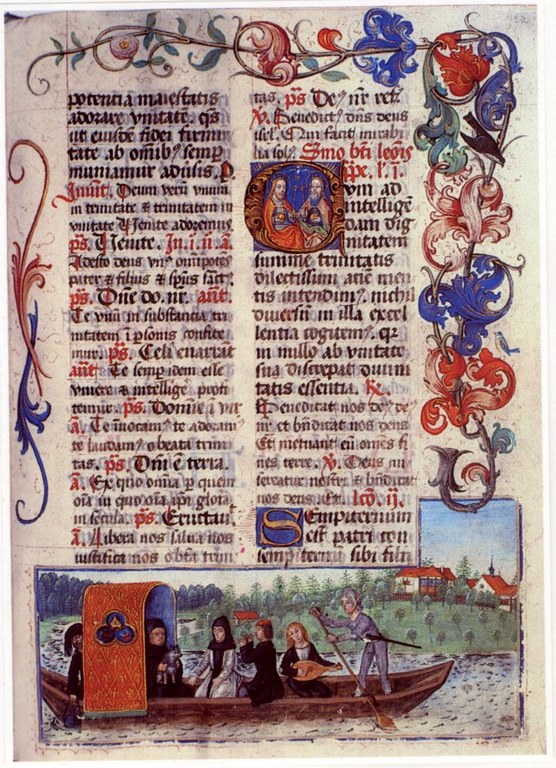 potentia maiestatis
adorare vnitate. qs
ut eiusdē fidei firmi
tate ab omībꝫ semp
muniamur adūsis. p
Inuit. Deum verū vnum
in trinitate & trinitatem in
vnitate Uenite adoremus
ps. Uenite. In. i. n̄. a̅
Adesto deus vnꝰ omīpotēs
pater & filius & spūs sanct
ps. Dn̄e do. nr̄. añt.
Te vnū in substantia tri
nitatem ī psonis confite
mur. ps. Celi enarrāt
añt Te semp idem esse
viuere & intelligē profi
temur. ps. Domini ē
a̅. Te inuocamꝰ te adoramꝰ
te laudamꝰ o beata trini
tas. ps. Dn̄i ē terra.
a̅. Ex quo om̄ia p quem
om̄ia in quo om̄ia ipi gloria
in secula. ps. Eructauit
a̅. Libera nos salua nos
iustifica nos o bt̄a trini
tas. ps. Deꝰ nr̄ ref.
V̅. Benedictꝰ dn̄s deus
isrl. Qui facit mirabi
lia solꝰ. Smo bti leonis
ppe. l. i.
Dum ad
intelligē
dam dig
nitatem
summe trinitatis
dilectissimi aciē men
tis intendimꝰ. nichil
diuersū in illa excel
lentia cogitemꝰ. qꝛ
in nullo ab vnitate
sua discrepat diuini
tatis essentia. R̅.
Benedicat nos deꝰ deꝰ
nr̄ et bn̄dicat nos deus
Et metuant eū omēs fi
nes terre. V̅. Deus mi
sereatur nostri & bn̄dicat
nos deus. Et. lc̄o. ij.
SEmpiternum
est patri con
sempiternū sibi filiū